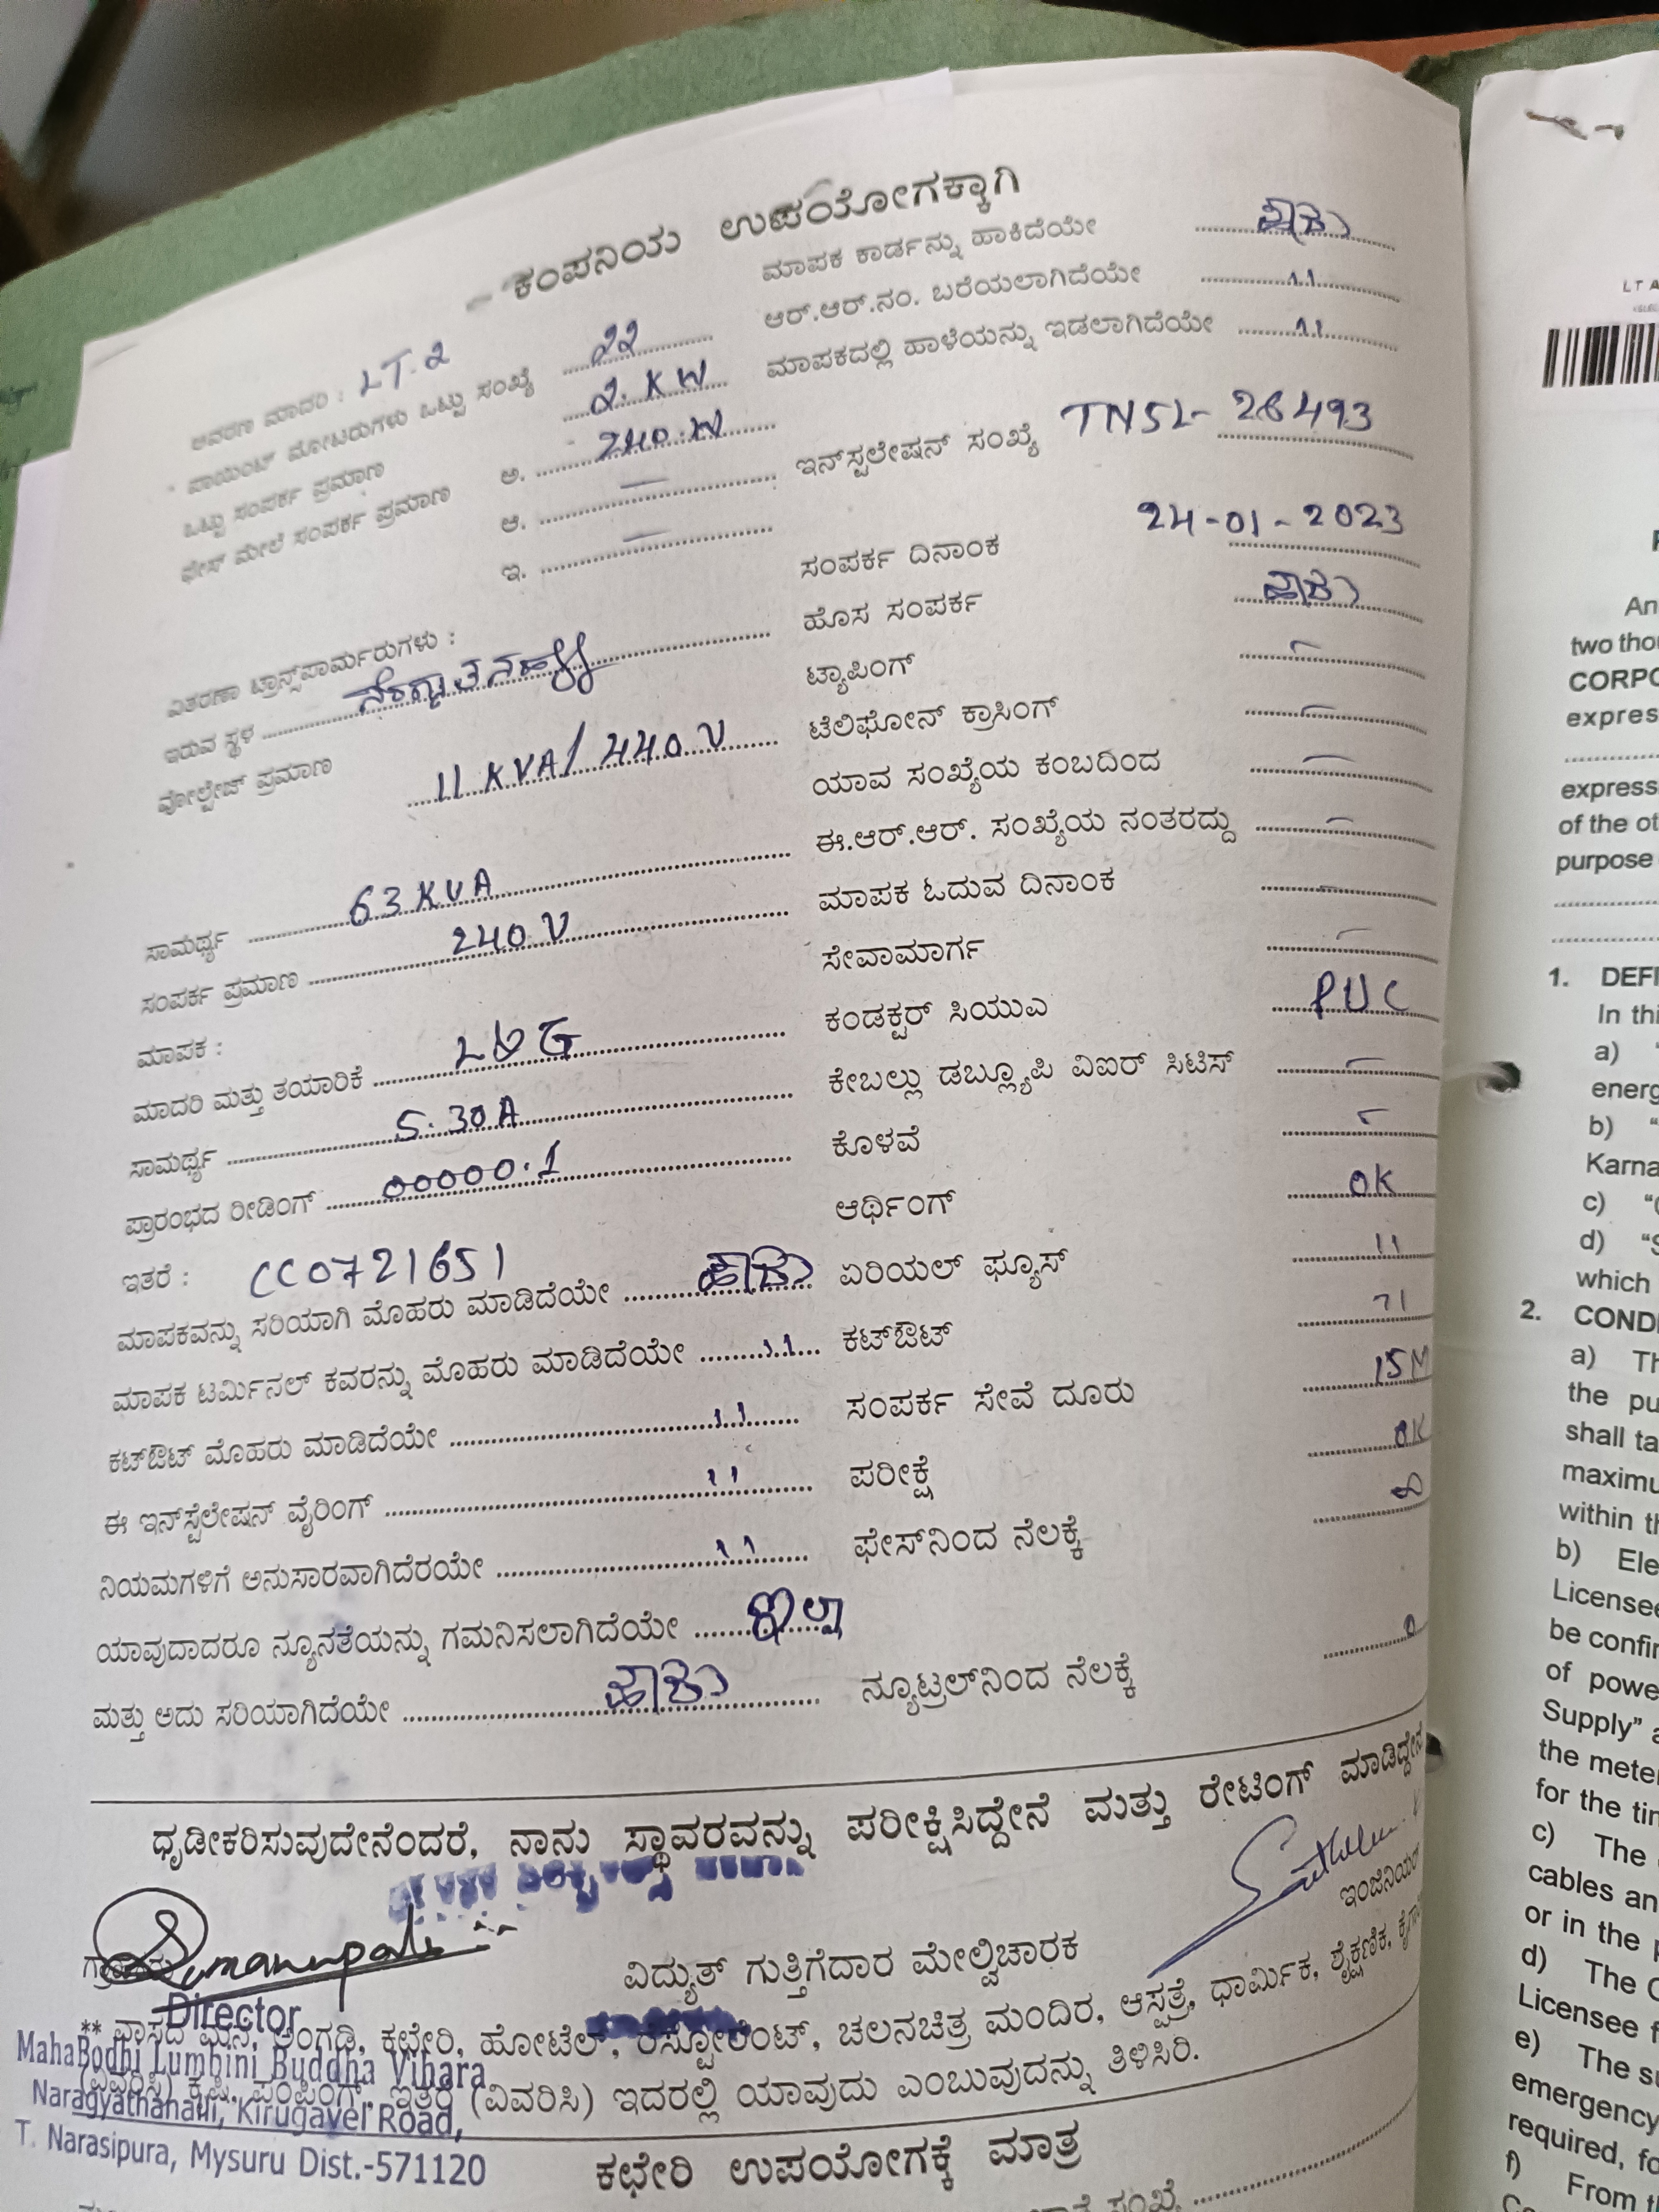 ಕಂಪನಿಯ ಉಪಯೋಗಕ್ಕಾಗಿ
ಆವರಣ ಮಾದರಿ : LT.2
ಪಾಯಿಂಟ್ ಮೋಟರುಗಳು ಒಟ್ಟು ಸಂಖ್ಯೆ 22
ಒಟ್ಟು ಸಂಪರ್ಕ ಪ್ರಮಾಣ 2. KW
ಫೇಸ್ ಮೇಲೆ ಸಂಪರ್ಕ ಪ್ರಮಾಣ ಅ. 240.W
ಆ. —
ಇ. —
ವಿತರಣಾ ಟ್ರಾನ್ಸ್‌ಪಾರ್ಮರುಗಳು :
ಇರುವ ಸ್ಥಳ
ವೋಲ್ಟೇಜ್ ಪ್ರಮಾಣ 11 KVA/ 440 V
ಸಾಮರ್ಥ್ಯ 63 KVA
ಸಂಪರ್ಕ ಪ್ರಮಾಣ 240 V
ಮಾಪಕ :
ಮಾದರಿ ಮತ್ತು ತಯಾರಿಕೆ L&G
ಸಾಮರ್ಥ್ಯ 5.30A
ಪ್ರಾರಂಭದ ರೀಡಿಂಗ್ 00000.1
ಇತರೆ : CC0721651
ಮಾಪಕವನ್ನು ಸರಿಯಾಗಿ ಮೊಹರು ಮಾಡಿದೆಯೇ ಹೌದು
ಮಾಪಕ ಟರ್ಮಿನಲ್ ಕವರನ್ನು ಮೊಹರು ಮಾಡಿದೆಯೇ 11
ಕಟ್‌ಔಟ್ ಮೊಹರು ಮಾಡಿದೆಯೇ 11
ಈ ಇನ್‌ಸ್ಟಲೇಷನ್ ವೈರಿಂಗ್ 11
ನಿಯಮಗಳಿಗೆ ಅನುಸಾರವಾಗಿದೆರಯೇ 11
ಯಾವುದಾದರೂ ನ್ಯೂನತೆಯನ್ನು ಗಮನಿಸಲಾಗಿದೆಯೇ ಇಲ್ಲಾ
ಮತ್ತು ಅದು ಸರಿಯಾಗಿದೆಯೇ ಹೌದು
ಮಾಪಕ ಕಾರ್ಡನ್ನು ಹಾಕಿದೆಯೇ ಹೌದು
ಆರ್.ಆರ್.ನಂ. ಬರೆಯಲಾಗಿದೆಯೇ 11
ಮಾಪಕದಲ್ಲಿ ಹಾಳೆಯನ್ನು ಇಡಲಾಗಿದೆಯೇ 11
ಇನ್‌ಸ್ಟಲೇಷನ್ ಸಂಖ್ಯೆ TNSL- 26493
ಸಂಪರ್ಕ ದಿನಾಂಕ 24-01-2023
ಹೊಸ ಸಂಪರ್ಕ ಹೌದು
ಟ್ಯಾಪಿಂಗ್ —
ಟೆಲಿಫೋನ್ ಕ್ರಾಸಿಂಗ್ —
ಯಾವ ಸಂಖ್ಯೆಯ ಕಂಬದಿಂದ —
ಈ.ಆರ್.ಆರ್. ಸಂಖ್ಯೆಯ ನಂತರದ್ದು —
ಮಾಪಕ ಓದುವ ದಿನಾಂಕ —
ಸೇವಾಮಾರ್ಗ —
ಕಂಡಕ್ಟರ್ ಸಿಯುಎ PVC
ಕೇಬಲ್ಲು ಡಬ್ಲ್ಯೂಪಿ ವಿಐರ್ ಸಿಟಿಸ್ —
ಕೊಳವೆ —
ಆರ್ಥಿಂಗ್ OK
ಏರಿಯಲ್ ಫ್ಯೂಸ್ 11
ಕಟ್‌ಔಟ್ 11
ಸಂಪರ್ಕ ಸೇವೆ ದೂರು 15M
ಪರೀಕ್ಷೆ OK
ಫೇಸ್‌ನಿಂದ ನೆಲಕ್ಕೆ
ನ್ಯೂಟ್ರಲ್‌ನಿಂದ ನೆಲಕ್ಕೆ
ಧೃಡೀಕರಿಸುವುದೇನೆಂದರೆ, ನಾನು ಸ್ಥಾವರವನ್ನು ಪರೀಕ್ಷಿಸಿದ್ದೇನೆ ಮತ್ತು ರೇಟಿಂಗ್ ಮಾಡಿದ್ದೇನೆ
ವಿದ್ಯುತ್ ಗುತ್ತಿಗೆದಾರ ಮೇಲ್ವಿಚಾರಕ
ಇಂಜಿನಿಯರ್
Director
MahaBodhi Lumbini Buddha Vihara
Naragyathanahalli, Kirugavel Road,
T. Narasipura, Mysuru Dist.-571120
** ವಾಸದ ಮನೆ, ಅಂಗಡಿ, ಕಛೇರಿ, ಹೋಟೆಲ್, ರೆಸ್ಟೋರೆಂಟ್, ಚಲನಚಿತ್ರ ಮಂದಿರ, ಆಸ್ಪತ್ರೆ, ಧಾರ್ಮಿಕ, ಶೈಕ್ಷಣಿಕ,
(ವಿವರಿಸಿ) ಕೃಷಿ, ಪಂಪಿಂಗ್, ಇತರೆ (ವಿವರಿಸಿ) ಇದರಲ್ಲಿ ಯಾವುದು ಎಂಬುವುದನ್ನು ತಿಳಿಸಿರಿ.
ಕಛೇರಿ ಉಪಯೋಗಕ್ಕೆ ಮಾತ್ರ
LT A
An
two thou
CORPO
expres
express
of the ot
purpose
1. DEFI
In thi
a)
energ
b) "
Karna
c) "
d) "S
which
2. COND
a) Th
the pu
shall ta
maximu
within th
b) Ele
Licensee
be confir
of powe
Supply" a
the mete
for the tin
c) The
cables an
or in the p
d) The C
Licensee f
e) The su
emergency
required, fo
f) From t